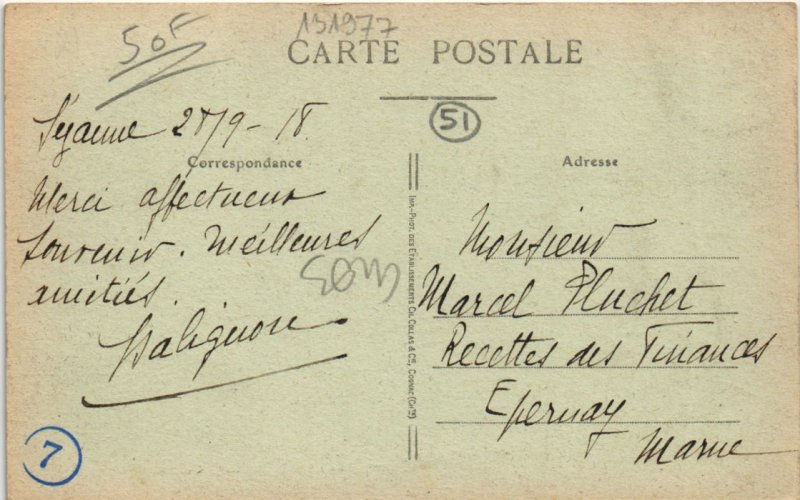 50F
131977
CARTE POSTALE
51
Sézanne 28/9-18.
Correspondance
Merci affectueux
souvenir. Meilleures
amitiés.
7
IMP.-PHOT. DES ETABLISSEMENTS CH. COLLAS & Cie, COGNAC (Chte)
Adresse
Monsieur
Marcel Pluchet
Recettes des Finances
Epernay
Marne